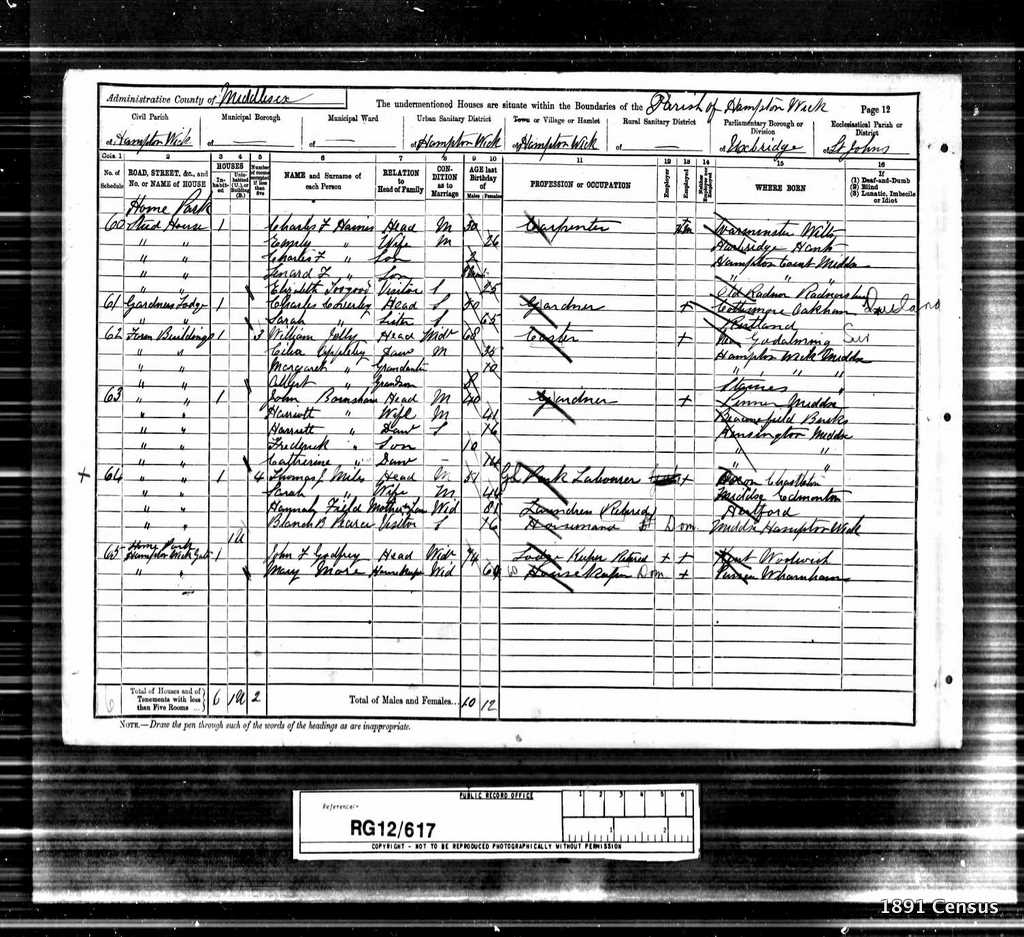 Administrative County of Middlesex
The undermentioned Houses are situate within the Boundaries of the Parish of Hampton Wick
Page 12
Civil Parish Municipal Borough Municipal Ward Urban Sanitary District Town or Village or Hamlet Rural Sanitary District Parliamentary Borough or Division Ecclesiastical Parish or District
of Hampton Wick of of of Hampton Wick of Hampton Wick of of Uxbridge of St Johns
Cols. 1 2 3 4 5 6 7 8 9 10 11 12 13 14 15 16
No. of Schedule ROAD, STREET, &c., and No. or NAME of HOUSE HOUSES Inhabited Uninhabited (U.), or Building (B.) Number of rooms occupied if less than five NAME and Surname of each Person RELATION to Head of Family CONDITION as to Marriage AGE last Birthday of Males Females PROFESSION or OCCUPATION Employer Employed Neither Employer nor Employed WHERE BORN If (1) Deaf-and-Dumb (2) Blind (3) Lunatic, Imbecile or Idiot
Home Park
60 House 1 Charles F Haines Head M 30 Carpenter Warminster Wilts
" " " Wife M 26 Hants
" " Charles F " Son 2 Hampton Court Middx
" " F " Son " "
" " Elizabeth Visitor S 25 Old Radnor Radnorshire
61 Gardners Lodge 1 Charles Head S Gardner + Oakham
" " Sarah " Sister S 65 Rutland
62 Farm Buildings 1 3 William Head Widr 68 + Godalming Sur
" " Daur M 35 Hampton Wick Middx
" " Margaret " 10 " " "
" " Albert " Grandson 8 Staines
63 " " 1 John Head M 40 Gardner + Pinner Middx
" " Harriett " Wife M 41 Beaconsfield Bucks
" " Harriett " Daur S 16 Kensington Middx
" " Frederick " Son 10 " "
" " Catherine " Daur - "
+ 64 " " 1 4 Thomas J Miles Head M 51 Park Labourer + Devon
" " Sarah " Wife M 44 Middx Edmonton
" " Hannah Field Mother Wid 81 Laundress Retired Hertford
" " Blanch B Pearce Visitor S 16 Housemaid Dom Middx Hampton Wick
1U
65 Home Park Hampton Wick Gate 1 John F Godfrey Head Widr 74 Lodge Keeper Retired + + Kent Woolwich
" " Mary More Housekeeper Wid 69 Housekeeper Dom + Sussex
Total of Houses and of Tenements with less than Five Rooms 6 1U 2 Total of Males and Females... 10 12
NOTE.—Draw the pen through such of the words of the headings as are inappropriate.
PUBLIC RECORD OFFICE
Reference:-
1 2 3 4 5 6
RG12/617
1 2
COPYRIGHT - NOT TO BE REPRODUCED PHOTOGRAPHICALLY WITHOUT PERMISSION
1891 Census